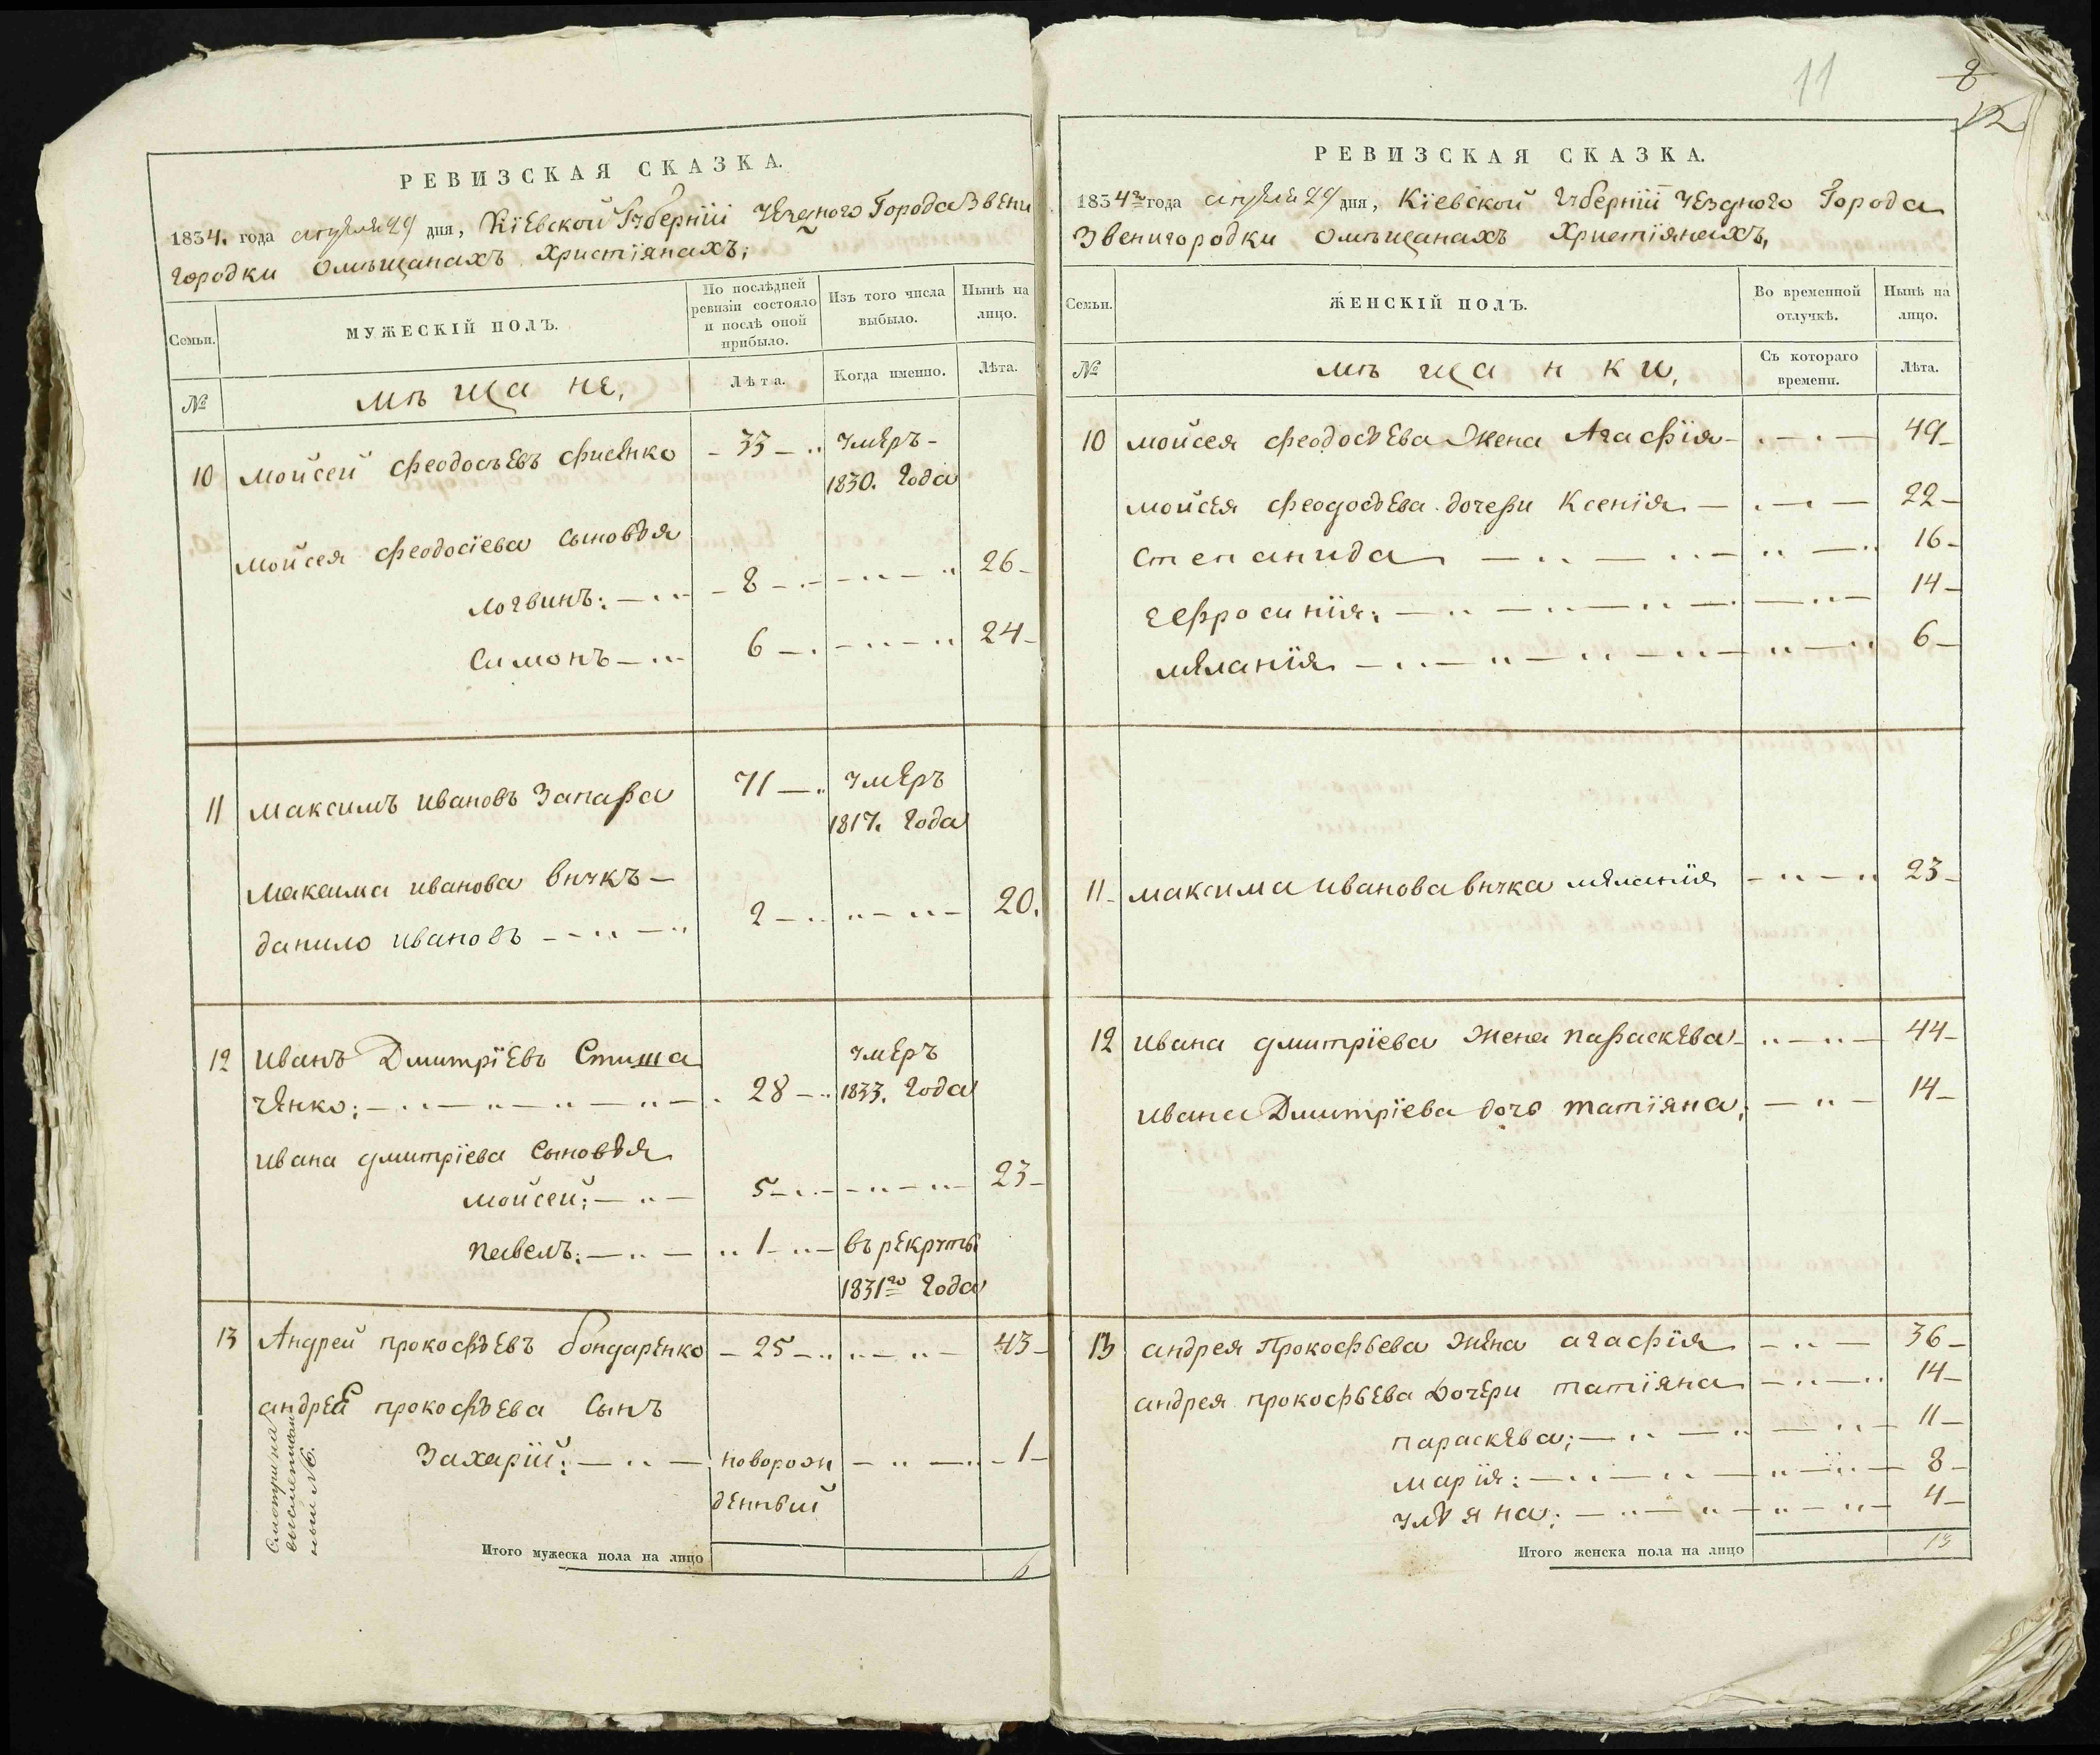 РЕВИЗСКАЯ СКАЗКА.
1834. года апреля 29 дня, Кіевской Губерніи Уезднаго Города Звени
городки Омѣщанахъ Христіянахъ;
Семьи.
МУЖЕСКІЙ ПОЛЪ.
По послѣдней ревизіи состояло и послѣ оной прибыло.
Изъ того числа выбыло.
Нынѣ на лицо.
№
мѣщане,
Лѣта.
Когда именно.
Лѣта.
10 мойсей феодосъевъ фиенко — 33 — умеръ
1830. Года
мойсея феодосіева сыновъя
логвинъ: — 8 — 26
Симонъ — 6 — 24
11 максимъ ивановъ Запара 71 — умеръ
1817. Года
максима иванова внукъ —
данило ивановъ — 2 — 20.
12 иванъ Дмитріевъ Стиша умеръ
ченко: — 28 — 1833. Года
ивана дмитріева сыновъя
мойсей: — 5 — 23
павелъ: — 1 — въ рекруты
1831го Года
13 Андрей прокофъевъ бондаренко — 25 — 43
андрея прокофъева Сынъ
Захарій: — новорож — 1
денный
Смотри на
ный №6.
Итого мужеска пола на лицо 6
11
8
12
РЕВИЗСКАЯ СКАЗКА.
1834го года апреля 29 дня, Кіевской Губерніи уезднаго Города
Звенигородки Омѣщанахъ Христіянахъ,
Семьи.
ЖЕНСКІЙ ПОЛЪ.
Во временной отлучкѣ.
Нынѣ на лицо.
№
мѣщанки,
Съ котораго времени.
Лѣта.
10 мойсея феодосъева Жена Агафія — 49
мойсея феодосъева дочери Ксенія — 22
степанида — 16
Еефросинія: — 14
меланія — 6
11 максима иванова внука меланія — 23
12 ивана дмитріева жена параскева — 44
ивана Дмитріева дочь татіяна: — 14
13 андрея Прокофьева жена агафія — 36
андрея прокофьева дочери татіяна — 14
параскева: — 11
марія: — 8
улъяна: — 4
Итого женска пола на лицо 13